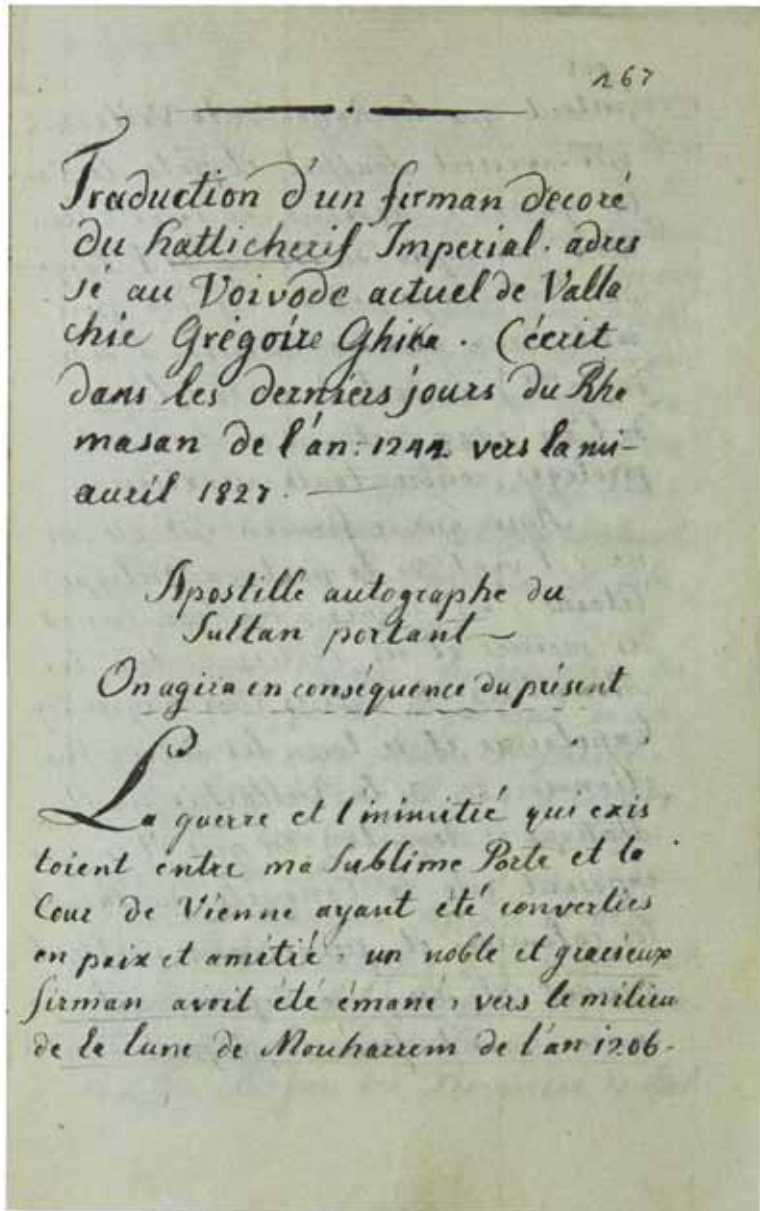 167
Traduction d'un firman decoré
du hatticherif Imperial. adres
sé au Voivode actuel de Valla
chie Grégoire Ghika. Cécrit
dans les derniers jours du Rha
masan de l'an: 1242 vers la mi-
avril 1827.
Apostille autographe du
Sultan portant
On agira en conséquence du présent
La guerre et l'inimitié qui exis
toient entre ma Sublime Porte et la
Cour de Vienne ayant été converties
en paix et amitié, un noble et gracieux
firman avoit été émané, vers le milieu
de la lune de Mouharrem de l'an 1206.